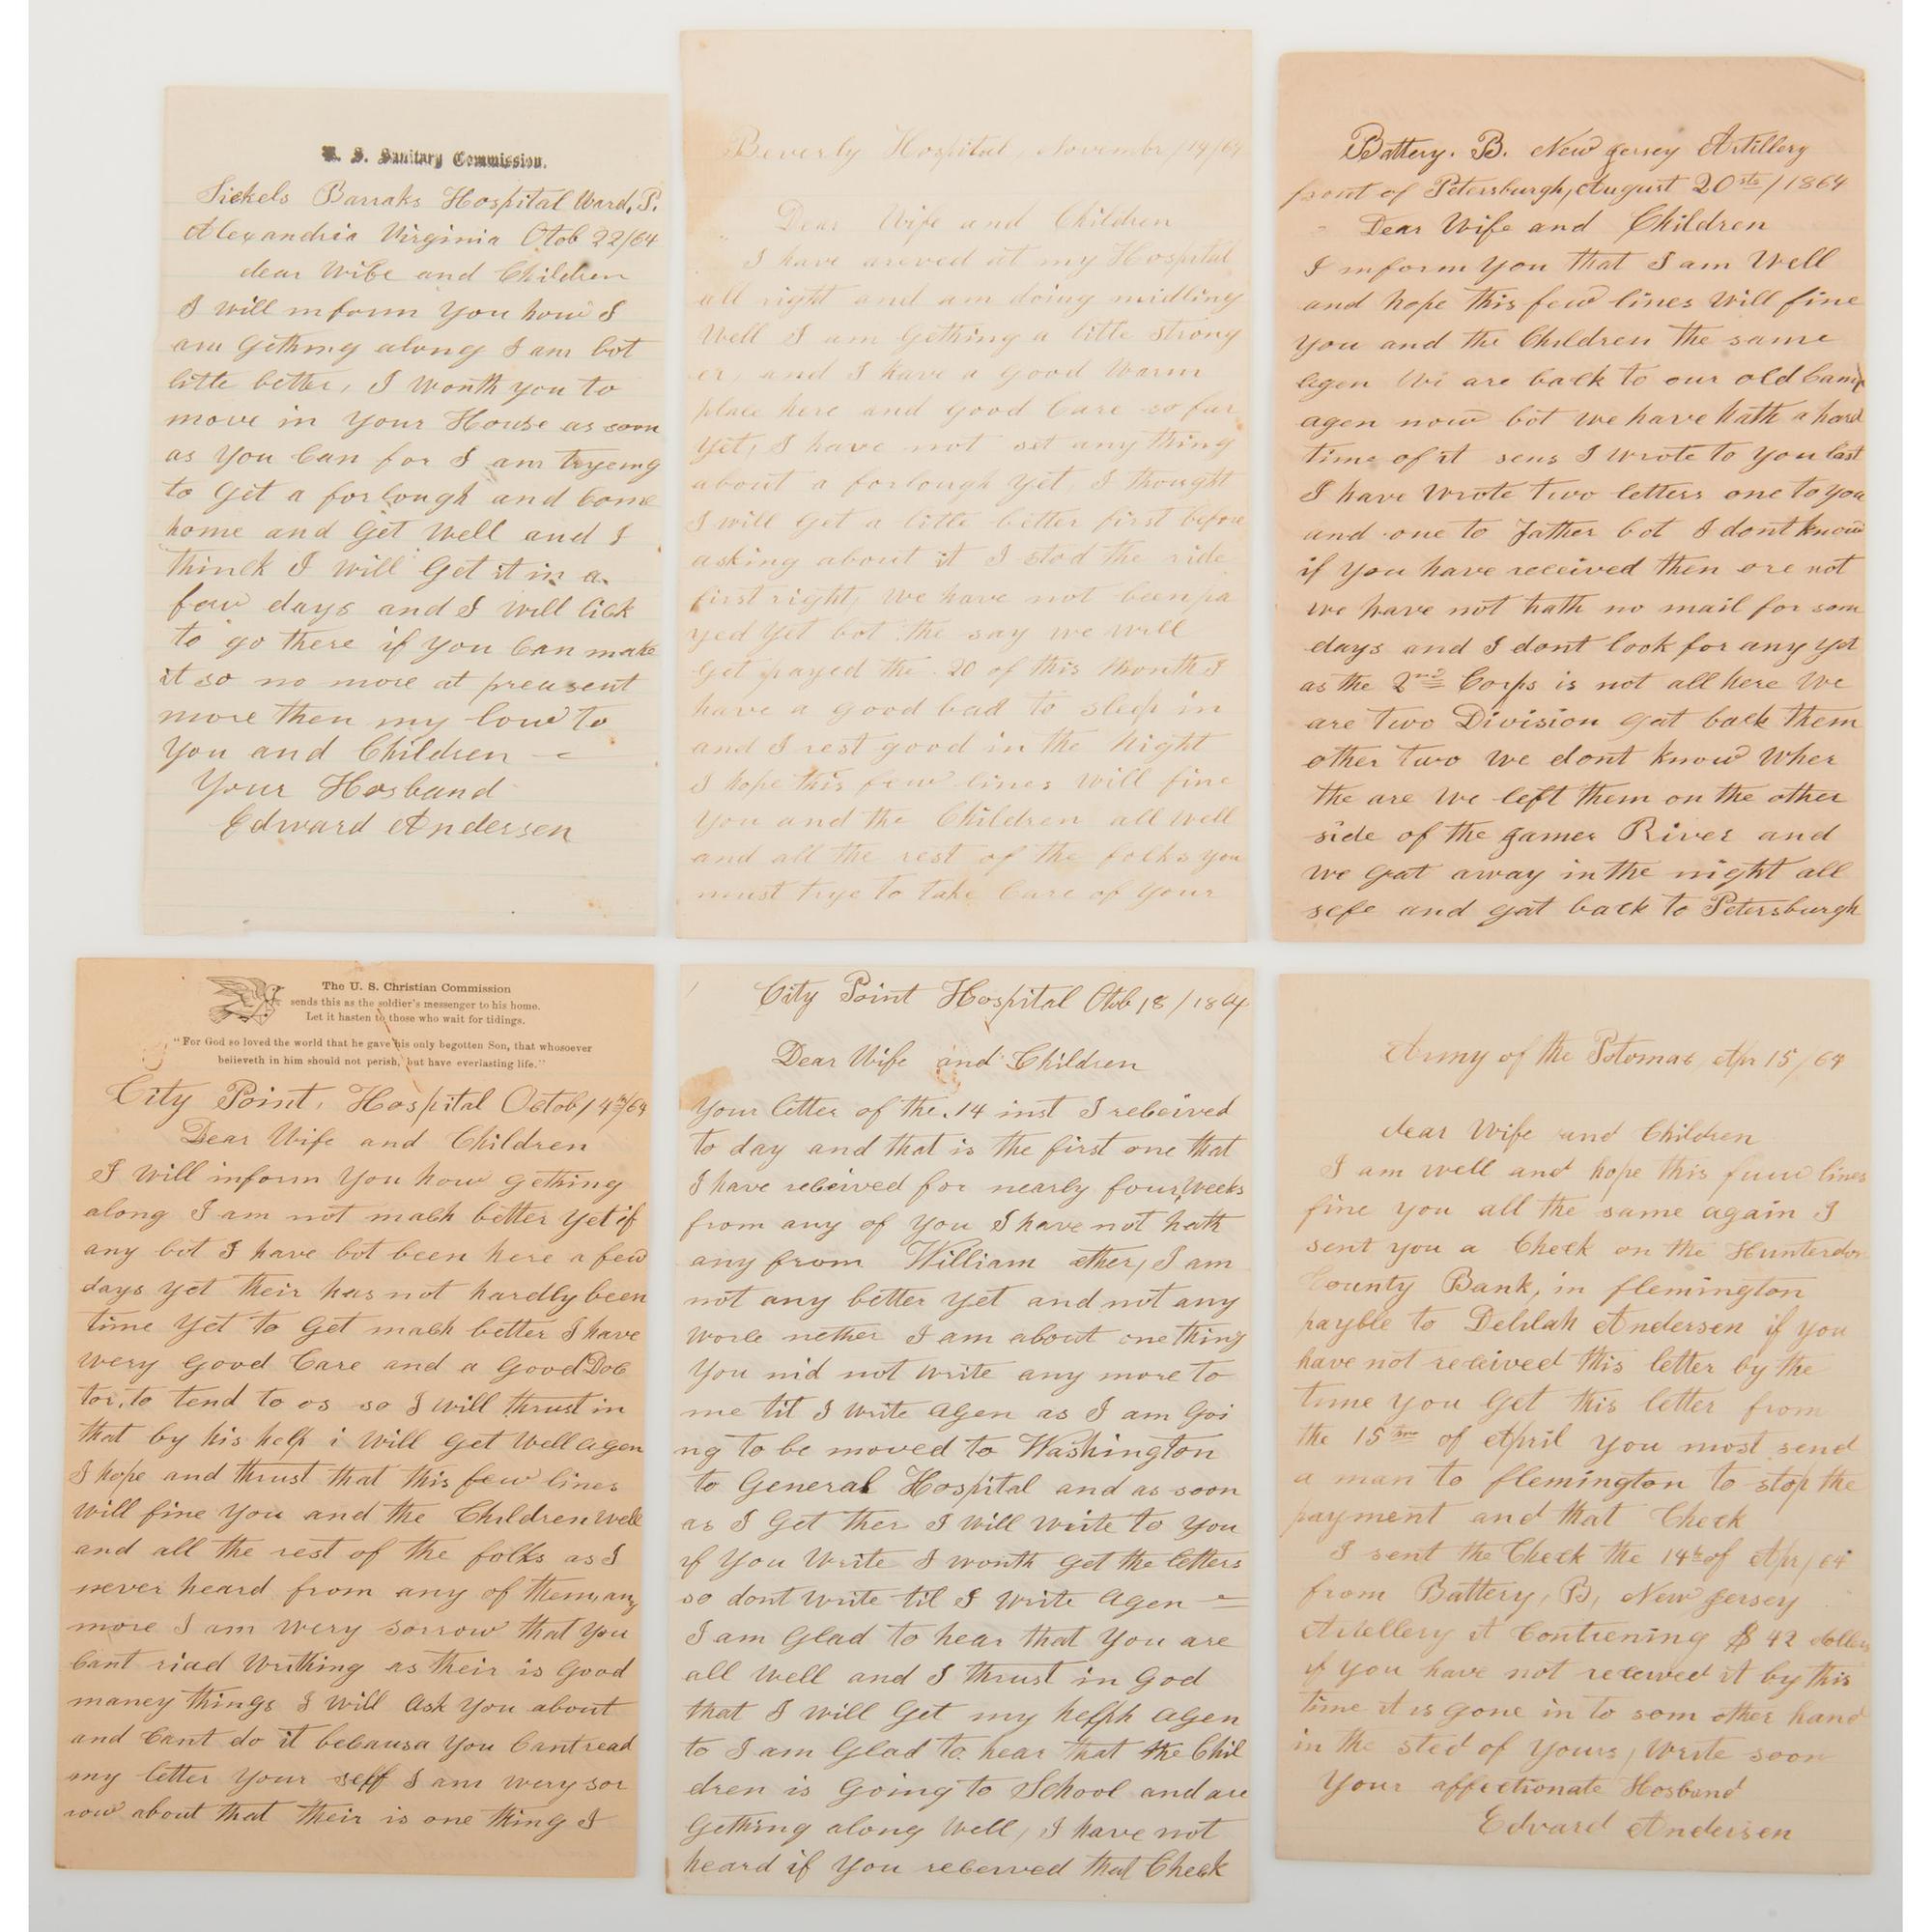 U. S. Sanitary Commission.
Sickels Barraks Hospital Ward, P.
Alexandria Virginia Otob 22/64
dear Wife and Children
I will inform you how I
am gething along I am bot
litle better, I Wonth you to
move in your House as soon
as you Can for I am tryeing
to get a forlough and Come
home and get Well and I
thinck I will get it in a
few days and I will lick
to go there if you Can make
it so no more at preasent
more then my low to
you and Children
Your Hosband
Edward Andersen
Beverly Hospital, November/14/64
Dear Wife and Children
I have areved at my Hospital
all right and am doing midling
Well I am gething a litle strong
er, and I have a good Warm
place here and good Care so far
yet, I have not set any thing
about a forlough yet, I thought
I will get a litle better first before
asking about it I stod the ride
first right, we have not been pa
yed yet bot the say we will
get payed the 20 of this month I
have a good bad to sleep in
and I rest good in the Night
I hope this few lines will fine
you and the Children all well
and all the rest of the folks you
must trye to take Care of your
Battery. B. New Jersey Artillery
front of Petersburgh, August 20sts/1864
Dear Wife and Children
I inform you that I am Well
and hope this few lines Will fine
you and the Children the same
agen Wi are back to our old Camp
agen now bot we have hath a hard
time of it sens I wrote to you last
I have Wrote two letters one to you
and one to Father bot I dont know
if you have received then ore not
we have not hath no mail for som
days and I dont look for any yet
as the 2nd Corps is not all here We
are two Division gat back them
other two we dont know Wher
the are We left them on the other
side of the Jamer River and
we gat away in the night all
sefe and gat back to Petersburgh
The U. S. Christian Commission
sends this as the soldier's messenger to his home.
Let it hasten to those who wait for tidings.
"For God so loved the world that he gave his only begotten Son, that whosoever
believeth in him should not perish, but have everlasting life."
City Point, Hospital Octob/4th/64
Dear Wife and Children
I Will inform You how gething
along I am not mach better yet if
any bot I have bot been here a few
days yet their has not hardly been
time yet to get mach better I have
wery good Care and a good Doc
tor, to tend to os so I will thrust in
that by his help i will get Well agen
I hope and thrust that this few lines
will fine you and the Children Well
and all the rest of the folks as I
never heard from any of them, any
more I am wery sorrow that you
Cant riad Writhing as their is good
maney things I will ask you about
and Cant do it becausa you Cant read
my letter your seff I am wery sor
row about that their is one thing I
City Point Hospital Otob 18/1864
Dear Wife and Children
Your letter of the 14 inst I received
to day and that is the first one that
I have received for nearly four Weeks
from any of you I have not hath
any from William ether, I am
not any better yet and not any
worce nether I am about one thing
you nid not write any more to
me til I write agen as I am goi
ng to be moved to Washington
to General Hospital and as soon
as I get ther I will write to you
if you Write I wonth get the letters
so dont write til I write agen
I am glad to hear that you are
all well and I thrust in God
that I will get my helph agen
to I am glad to hear that the Chil
dren is going to School and are
gething along well, I have not
heard if you received that Check
Army of the Potomac, Apr 15/64
dear Wife and Children
I am well and hope this fuw lines
fine you all the same again I
sent you a Check on the Hunterdon
County Bank, in flemington
payble to Delilah Andersen if you
have not received this letter by the
time you get this letter from
the 15 of April you most send
a man to flemington to stop the
payment and that Check
I sent the Check the 14th of Apr/64
from Battery, B, New Jersey
Artellery it Contiening $ 42 dollers
if you have not received it by this
time it is gone in to som other hand
in the sted of yours, Write soon
Your affectionate Hosband
Edvard Andersen